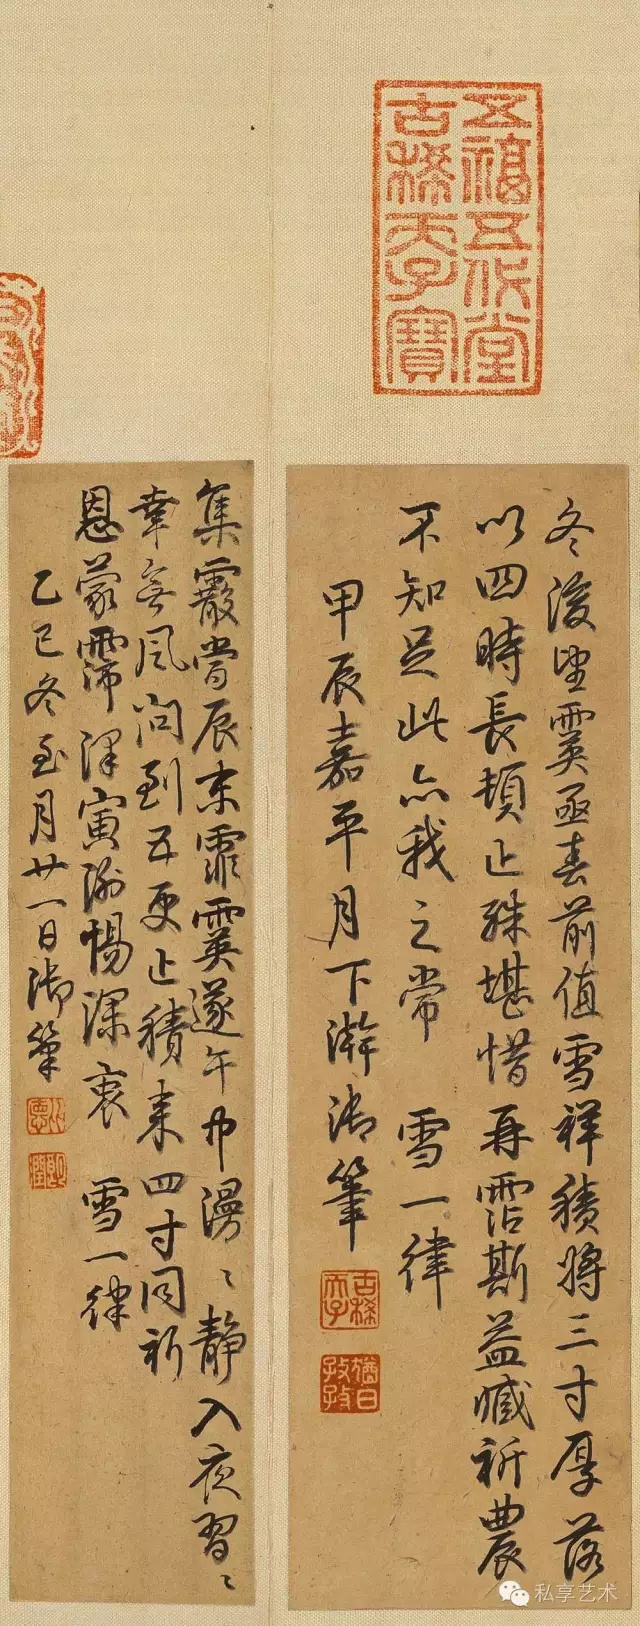 五福五代堂
古稀天子寶
冬後望霙亟春前值雪祥積將三寸厚落
以四時長頓止殊堪惜再霑斯益臧祈農
不知足此亦我之常 雪一律
甲辰嘉平月下澣御筆
古稀天子
猶日孜孜
集霰當辰末霏霙遂午中漫〻靜入夜習〻
幸無風問到五更止積來四寸同祈
恩蒙霈澤寅謝惕深衷 雪一律
乙巳冬至月廿一日御筆
比德
朗潤
私享艺术